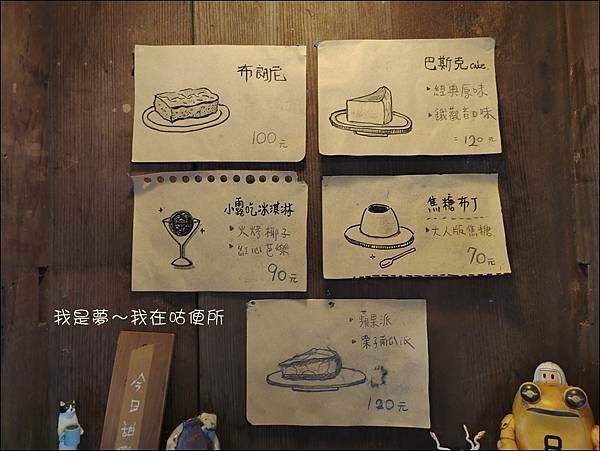 布朗尼
100元
巴斯克cake
▸經典原味
▸鐵觀音口味
120元
小露吃冰淇淋
▸火烤椰子
▸紅心芭樂
90元
焦糖布丁
▸大人版焦糖
70元
▸蘋果派
▸栗子南瓜派
120元
我是夢～我在咕便所
今日甜